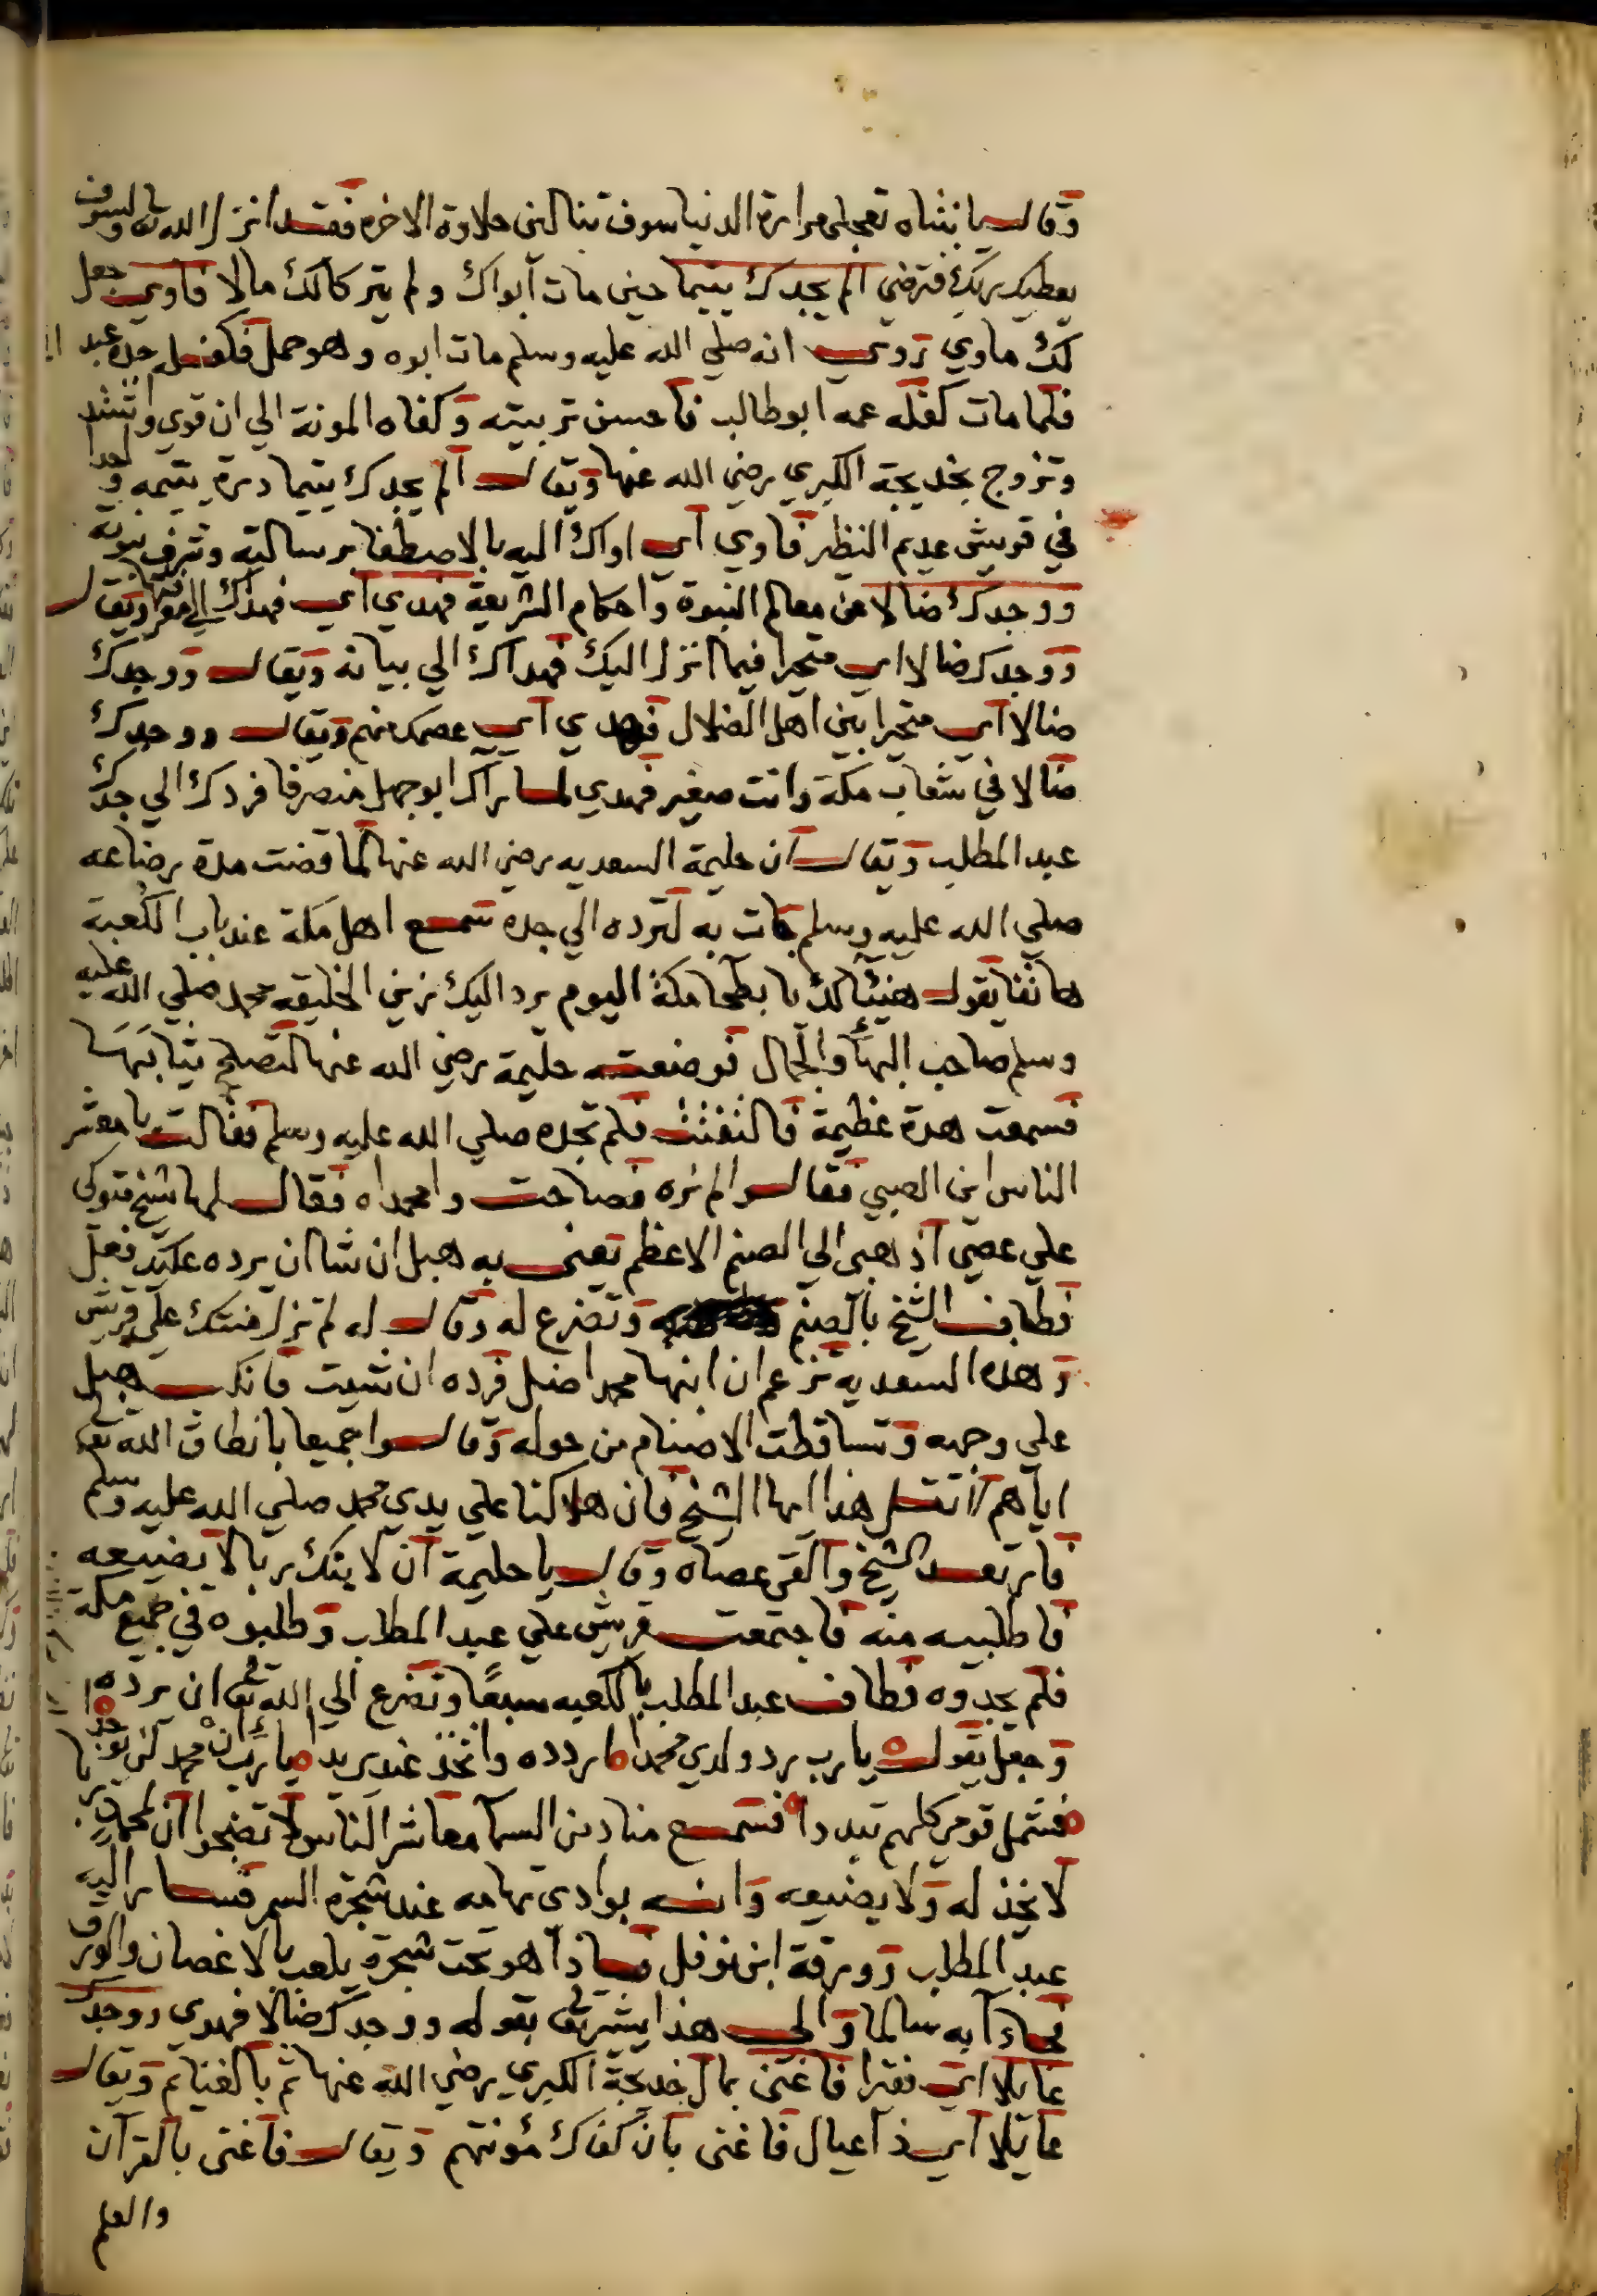 وقال يا بنتاه تعجلي مرارة الدنيا سوف تنالين حلاوة الاخره فقد انزل الله تع ولسوف
يعطيك ربك فترضى الم يجدك يتيما حين مات آبواك ولم يتركا لك مالا فاوي جعل
لك ماوي روي انه صلي الله عليه وسلم مات ابوه وهو حمل فكفله جده عبد
فلما مات كفله عمه ابو طالب فاحسن تربيته وكفاه المونة الي ان قوي واشتد
وتزوج بخديجة الكبري رضي الله عنها ويقال الم يجدك يتيما درة يتيمه واحدا
في قريش عديم النظير فاوي اي اواك اليه بالاصطفا برسالته وشرف نبوته
ووجدك ضالا عن معالم النبوة واحكام الشريعة فهدي اي فهداك الي معرفتها ويقال
ووجدك ضالا اي متحيرا فيما انزل اليك فهداك الي بيانه ويقال ووجدك
ضالا اي متحيرا بين اهل الضلال فهدي اي عصمك منهم ويقال ووجدك
ضالا في شعاب مكة وانت صغير فهدي لما راك ابو جهل منصرفا فردك الي جدك
عبد المطلب ويقال ان حليمة السعديه رضي الله عنها لما قضت مدة رضاعه
صلي الله عليه وسلم جات به لترده الي جده سمع اهل مكة عند باب الكعبة
هاتفا يقول هنيئا لك يا بطحا مكة اليوم يرد اليك زين الخليقه محمد صلي الله عليه
وسلم صاحب البهاء والجمال فوضعته حليمة رضي الله عنها لتصلح ثيابها
فسمعت هدة عظيمة فالتفتت فلم تجده صلي الله عليه وسلم فقالت يا معشر
الناس اين الصبي فقالوا لم نره فصاحت وامحمداه فقال لها شيخ متوكي
علي عصي اذهبي الي الصنم الاعظم تعني به هبل ان شا ان يرده عليك فعل
فطاف الشيخ بالصنم وتضرع له وقال له لم تزل منتك علي قريش
وهذه السعديه تزعم ان ابنها محمدا ضل فرده ان شيت فانكب هبل
علي وجهه وتساقطت الاصنام من حوله وقالوا جميعا بانطاق الله تع
اياهم لا تقل هذا ايها الشيخ فان هلاكنا علي يدي محمد صلي الله عليه وسلم
فارتعد الشيخ والقى عصاه وقال يا حليمة ان لابنك ربا لا يضيعه
فاطلبيه منه فاجتمعت قريش علي عبد المطلب وطلبوه في جميع مكة
فلم يجدوه فطاف عبد المطلب بالكعبه سبعًا وتضرع الي الله تع ان يرده
وجعل يقول يارب رد ولدي محمدا اردده واتخذ عندي يدا يارب ان محمد لن يوجدا
فشمل قومي كلهم تبددا فسمع مناد من السما معاشر الناس لا تضجوا ان لمحمد ربا
لا يخذله ولا يضيعه وانه بوادي تهامه عند شجرة السمر فسار اليه
عبد المطلب وورقة ابن نوفل فاذا هو تحت شجرة يلعب بالاغصان والورق
فجاءا به سالما والي هذا يشير تع بقوله ووجدك ضالا فهدي ووجدك
عايلا اي فقيرا فاغنى بمال خديجة الكبري رضي الله عنها ثم بالغنايم ويقال
عايلا اي ذا عيال فاغنى بان كفاك مؤنتهم ويقال فاغنى بالقرآن
والعلم